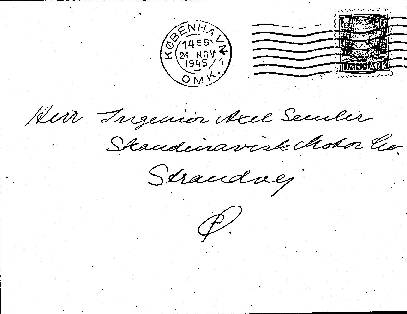 KØBENHAVN
24 NOV
1945
OMK.
Herr Ingeniør Axel Semler
Skandinavisk Motor Co.
Strandvej
Ø.